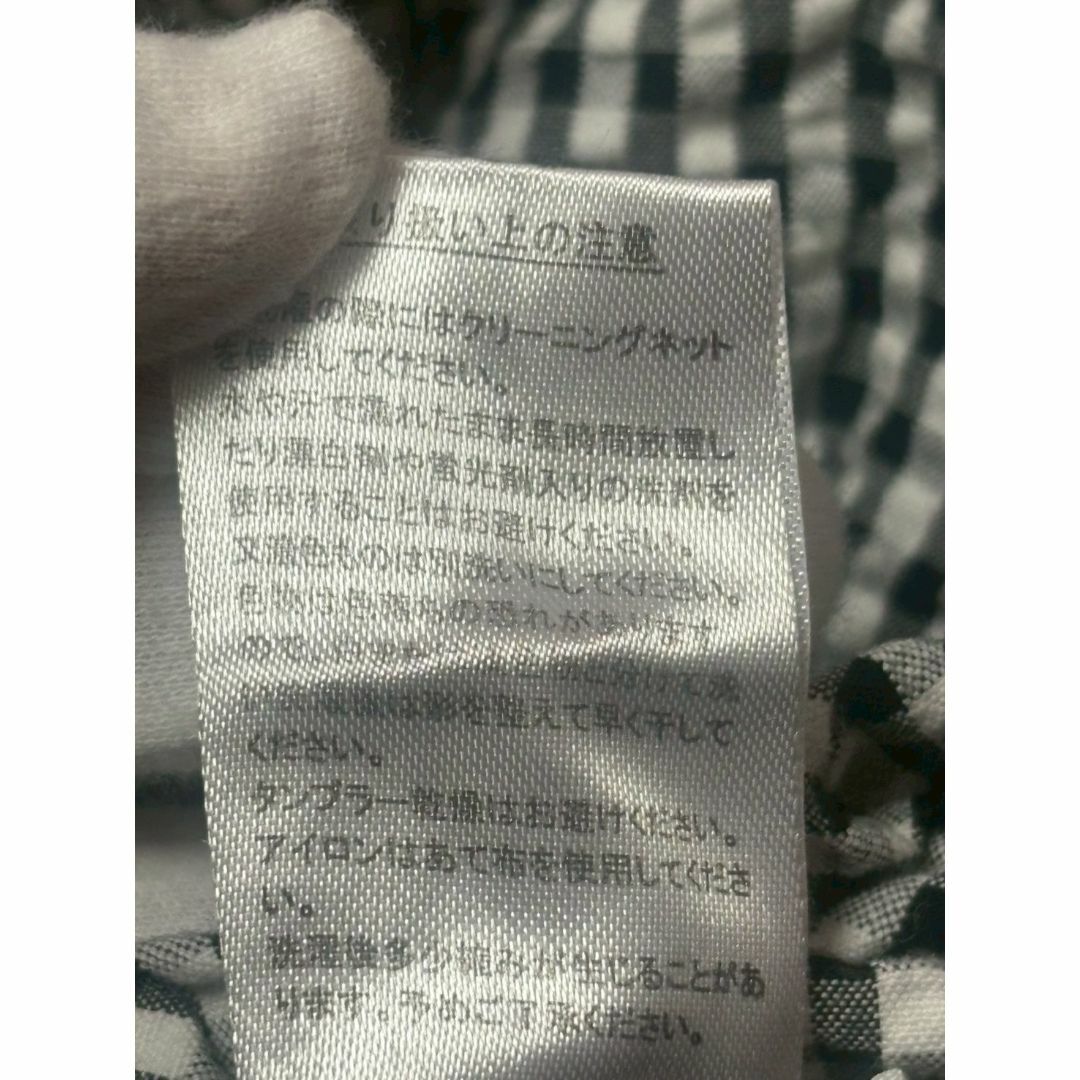 り扱い上の注意
の際にはクリーニングネット
を使用してください。
水や汗で濡れたまま長時間放置し
たり蛍光剤入りの洗剤を
使用することはお避けください。
又濃色ものは別洗いにしてください。
色物は色落ちの恐れがあります
ので、
形を整えて早く干して
ください。
タンブラー乾燥はお避けください。
アイロンはあて布を使用してくださ
い。
洗濯後多少縮みが生じることがあ
ります。予めご了承ください。